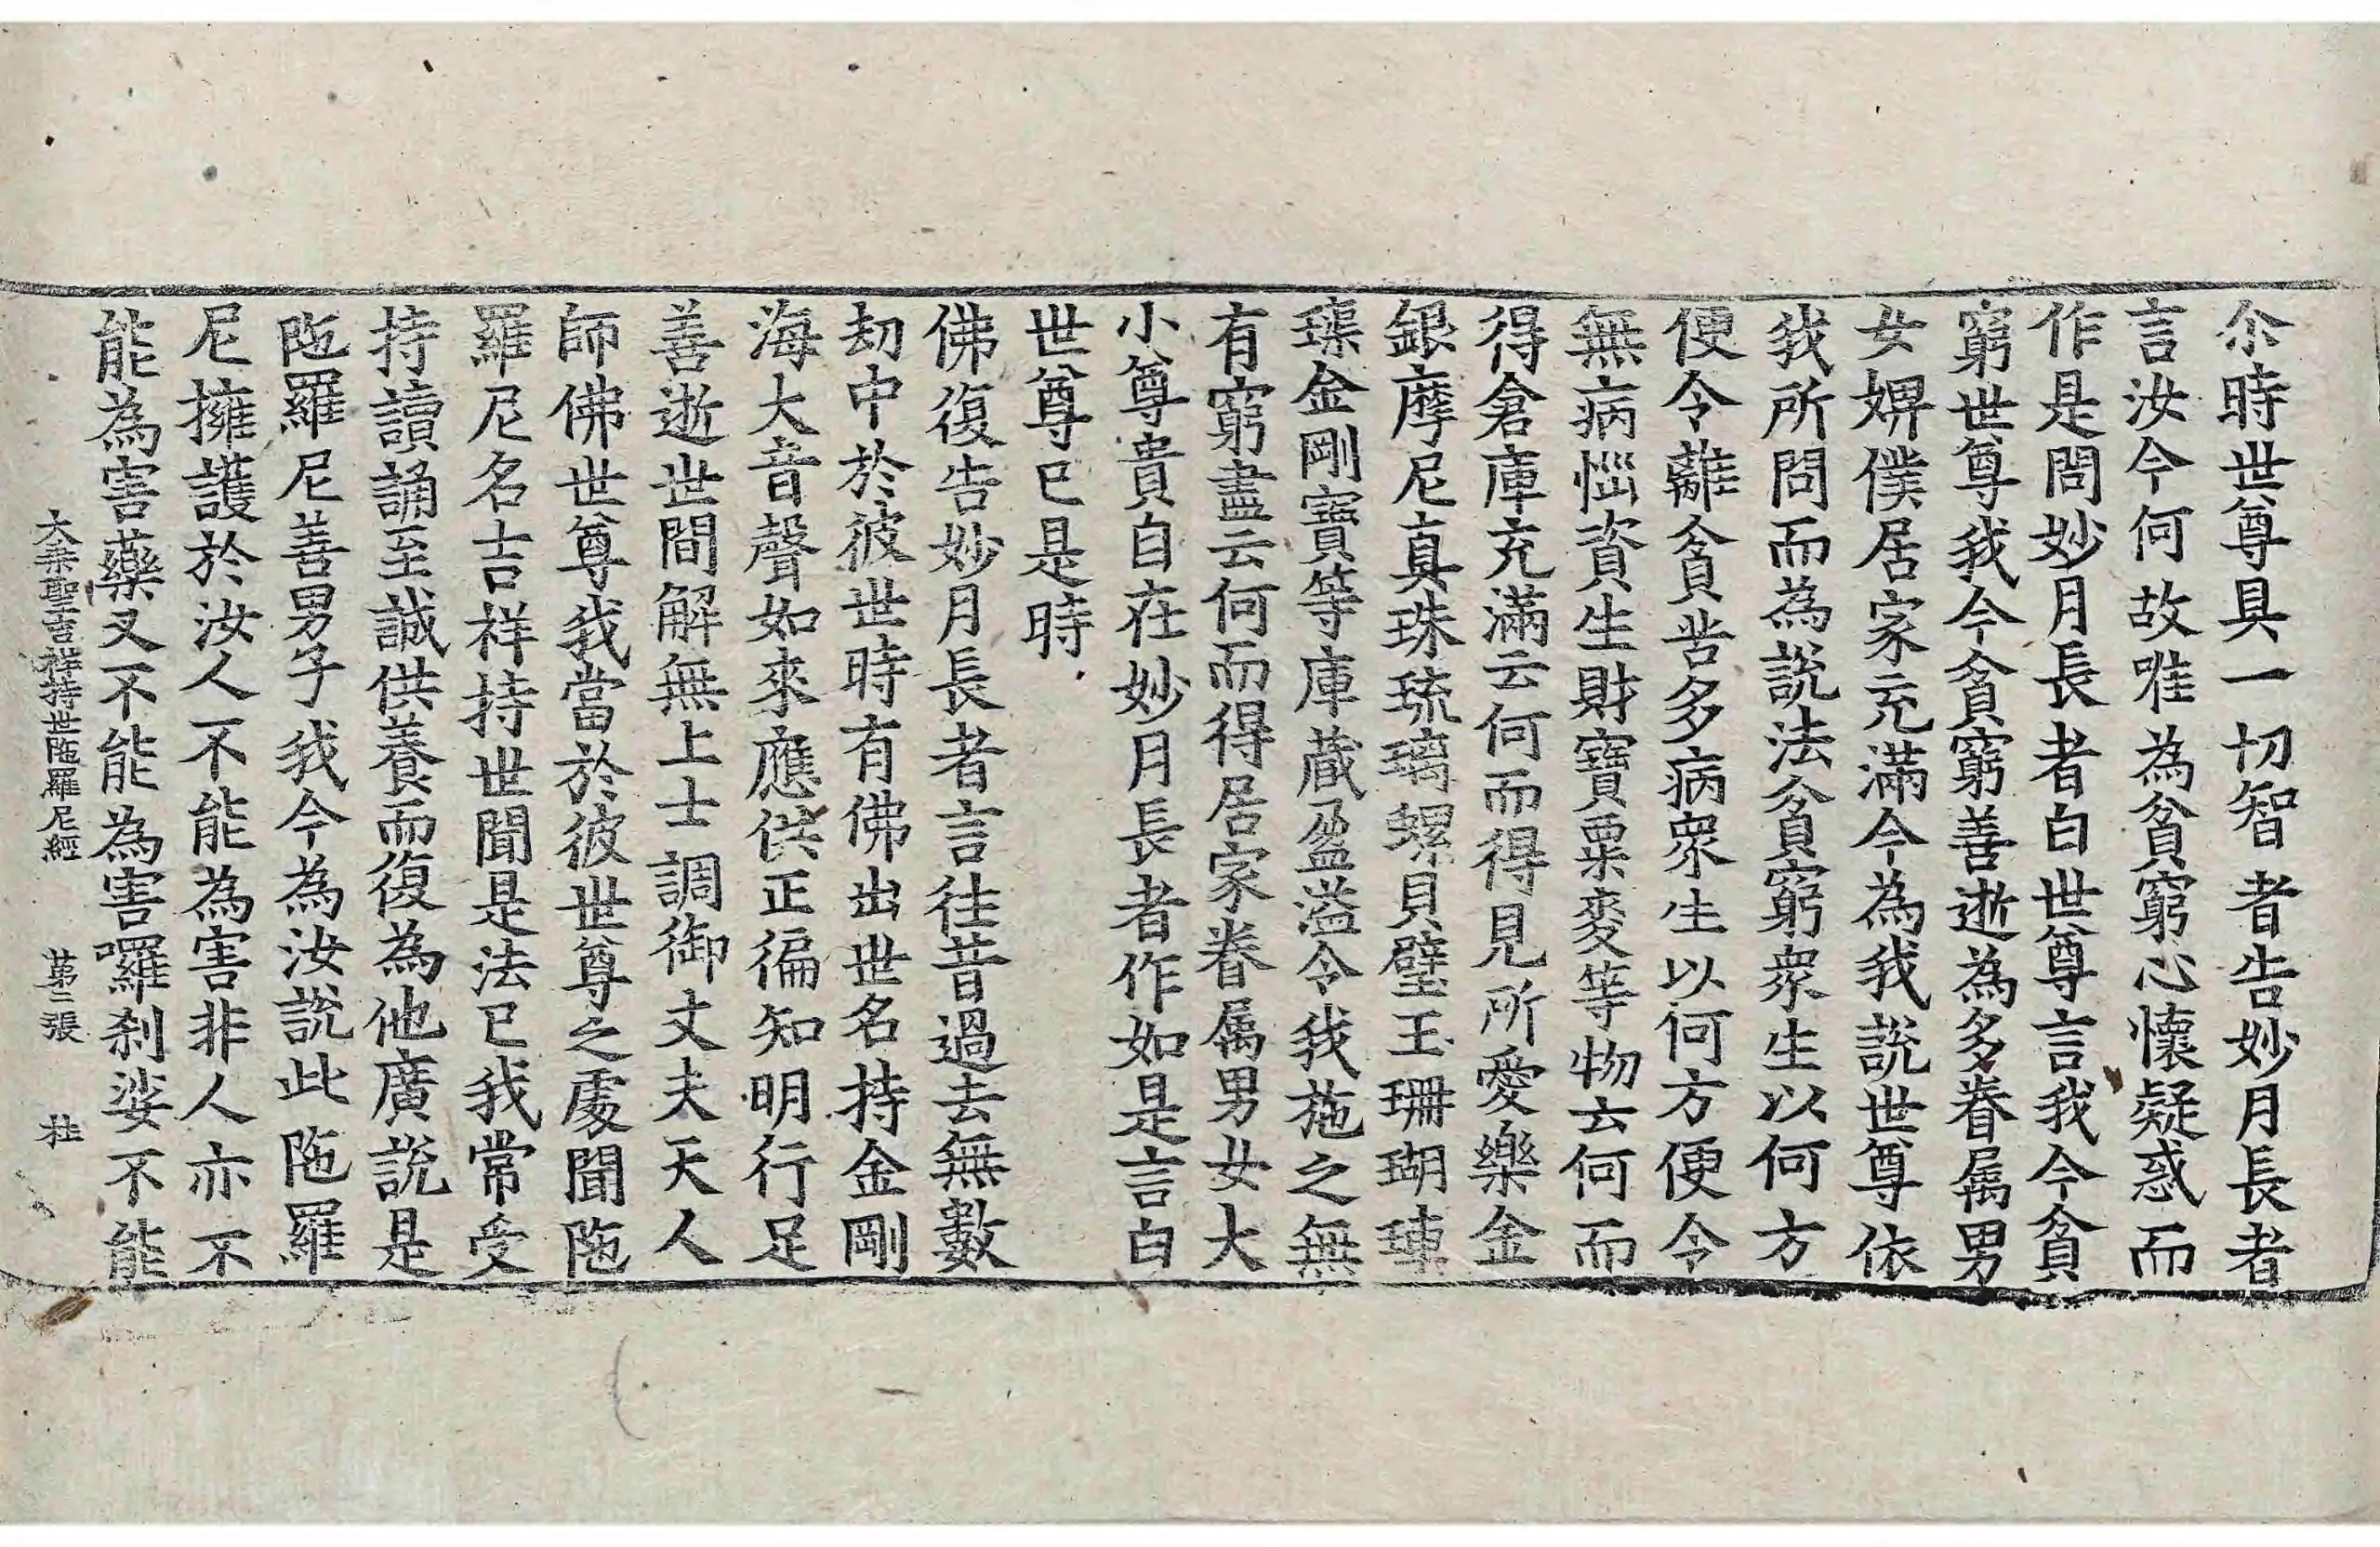 尒時世尊具一切智者告妙月長者
言汝今何故唯為貧窮心懷疑惑而
作是問妙月長者白世尊言我今貧
窮世尊我今貧窮善逝為多眷属男
女婢僕居家充滿今為我說世尊依
我所問而為說法貧窮衆生以何方
便令離貧苦多病衆生以何方便令
無病惱資生財寶粟麥等物云何而
得倉庫充滿云何而得見所愛樂金
銀摩尼真珠琉璃螺貝璧玉珊瑚璖
璖金剛寶等庫藏盈溢令我施之無
有窮盡云何而得居家眷属男女大
小尊貴自在妙月長者作如是言白
世尊已是時
佛復告妙月長者言往昔過去無數
劫中於彼世時有佛出世名持金剛
海大音聲如來應供正徧知明行足
善逝世間解無上士調御丈夫天人
師佛世尊我當於彼世尊之處聞陁
羅尼名吉祥持世聞是法已我常受
持讀誦至誠供養而復為他廣說是
陁羅尼善男子我今為汝說此陁羅
尼擁護於汝人不能為害非人亦不
能為害藥叉不能為害囉剎娑不能
大乗聖吉祥持世陁羅尼經 第二張 杜